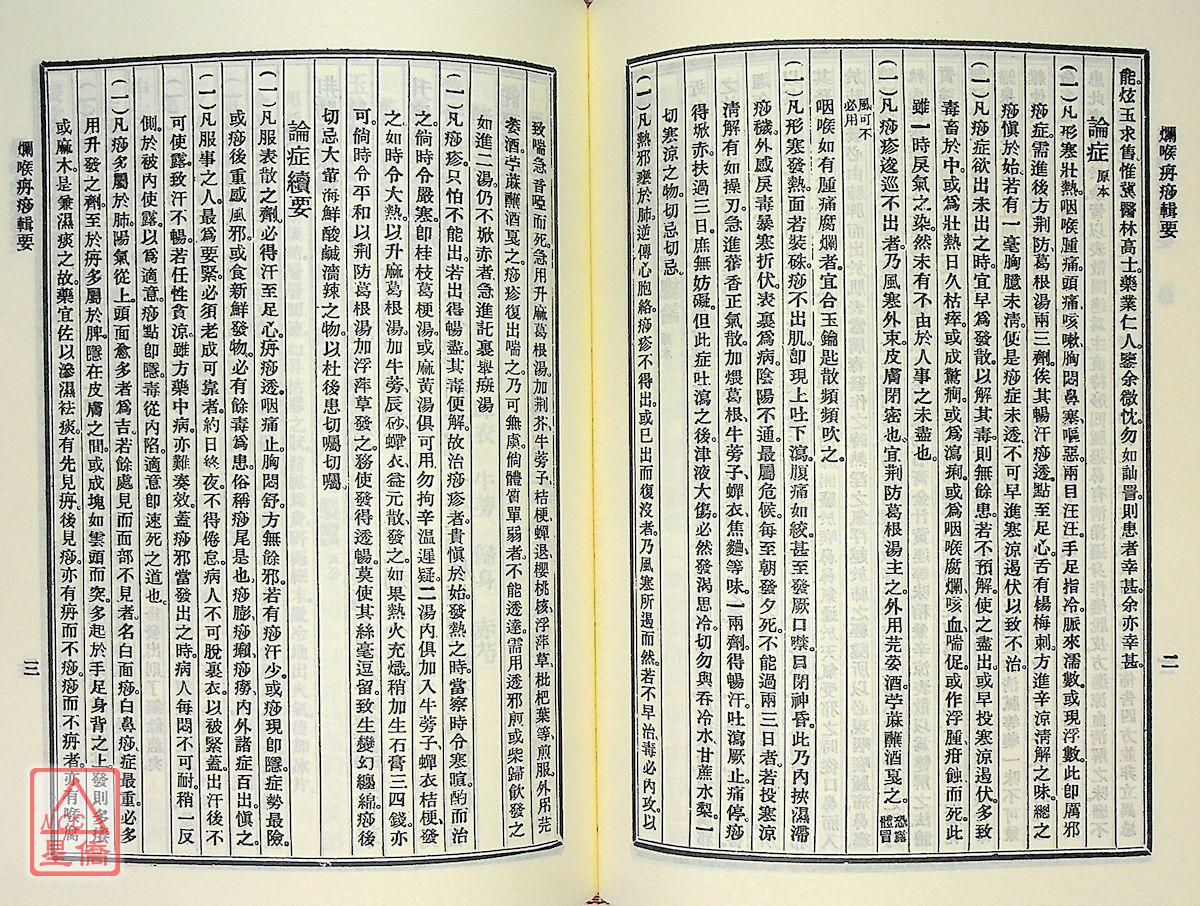 爛喉痧痧輯要
二
能炫玉求售惟冀醫林高士藥業仁人鑒余微忱勿如訕詈則患者幸甚余亦幸甚
論症 原本
(一)凡形寒壯熱咽喉腫痛頭痛咳嗽胸悶鼻塞嘔惡兩目汪汪手足指冷脈來濡數或現浮數此卽厲邪
痧症需進後方荆防葛根湯兩三劑俟其暢汗痧透點至足心舌有楊梅刺方進辛涼清解之味總之
痧愼於始若有一毫胸臆未清便是痧症未透不可早進寒涼遏伏以致不治
(一)凡痧症欲出未出之時宜早爲發散以解其毒則無餘患若不預解使之盡出或早投寒涼遏伏多致
毒畜於中或爲壯熱日久枯瘁或成驚癎或爲瀉痢或爲咽喉腐爛咳血喘促或作浮腫疳蝕而死此
雖一時戾氣之染然未有不由於人事之未盡也
(一)凡痧疹逡巡不出者乃風寒外束皮膚閉密也宜荆防葛根湯主之外用芫荽酒苧蔴蘸酒戛之恐露體冒
風可不必用
咽喉如有腫痛腐爛者宜合玉鑰匙散頻頻吹之
(一)凡形寒發熱面若裝硃痧不出肌卽現上吐下瀉腹痛如絞甚至發厥口噤目閉神昏此乃內挾濕滯
痧穢外感戾毒暴寒折伏表裏爲病陰陽不通最屬危候每至朝發夕死不能過兩三日者若投寒涼
清解有如操刃急進藿香正氣散加煨葛根牛蒡子蟬衣焦麯等味一兩劑得暢汗吐瀉厥止痛停痧
得掀赤扶過三日庶無妨礙但此症吐瀉之後津液大傷必然發渴思冷切勿與吞冷水甘蔗水梨一
切寒涼之物切忌切忌
(一)凡熱邪壅於肺逆傳心胞絡痧疹不得出或已出而復沒者乃風寒所遏而然若不早治毒必內攻以
致喘急音啞而死急用升麻葛根湯加荆芥牛蒡子桔梗蟬退櫻桃核浮萍草枇杷葉等煎服外用芫
荽酒苧蔴蘸酒戛之痧疹復出喘之乃可無虞倘體質單弱者不能透達需用透邪煎或柴歸飲發之
如進二湯仍不掀赤者急進託裏舉斑湯
(一)凡痧疹只怕不能出若出得暢盡其毒便解故治痧疹者貴愼於始發熱之時當察時令寒暄酌而治
之倘時令嚴寒卽桂枝葛梗湯或麻黃湯俱可用勿拘辛溫遲疑二湯內俱加入牛蒡子蟬衣桔梗發
之如時令大熱以升麻葛根湯加牛蒡辰砂蟬衣益元散發之如果熱火充熾稍加生石膏三四錢亦
可倘時令平和以荆防葛根湯加浮萍草發之務使發得透暢莫使其絲毫逗留致生變幻纏綿痧後
切忌大葷海鮮酸鹹濇辣之物以杜後患切囑切囑
論症續要
(一)凡服表散之劑必得汗至足心痧透咽痛止胸悶舒方無餘邪若有痧汗少或痧現卽隱症勢最險
或痧後重感風邪或食新鮮發物必有餘毒爲患俗稱痧尾是也痧膨痧癩痧癆內外諸症百出愼之
(一)凡服事之人最爲要緊必須老成可靠者約日終夜不得倦怠病人不可脫裹衣以被緊蓋出汗後不
可使露致汗不暢若任性貪涼雖方藥中病亦難奏效蓋痧邪當發出之時病人每悶不可耐稍一反
側於被內使露以爲適意痧點卽隱毒從內陷適意卽速死之道也
(一)凡痧多屬於肺陽氣從上頭面愈多者爲吉若餘處見而面部不見者名白面痧白鼻痧症最重必多
用升發之劑至於痧多屬於脾隱在皮膚之間或成塊如雲頭而突多起於手足身背之上發則多癢
或麻木是兼濕痰之故藥宜佐以滲濕祛痰有先見痧後見痧亦有痧而不痧痧而不痧者亦有喉腐
爛喉痧痧輯要
三
NCC
星僑